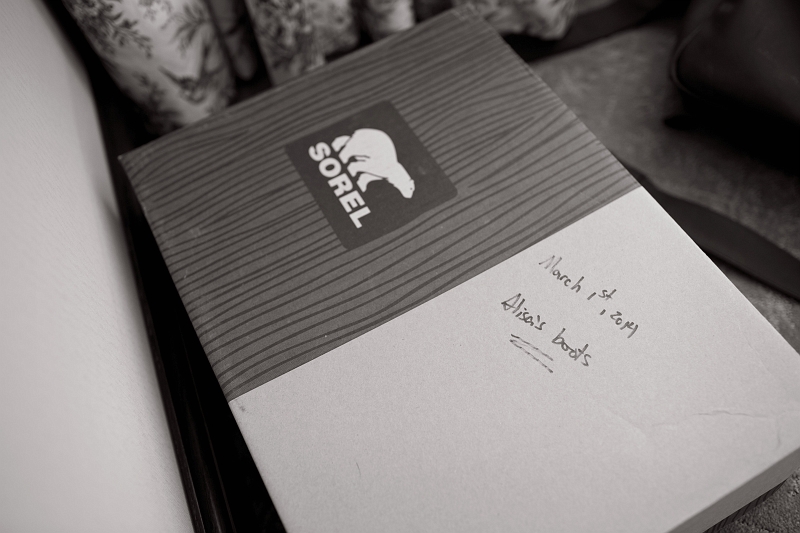 SOREL
March 1st, 2014
Alisa's boots